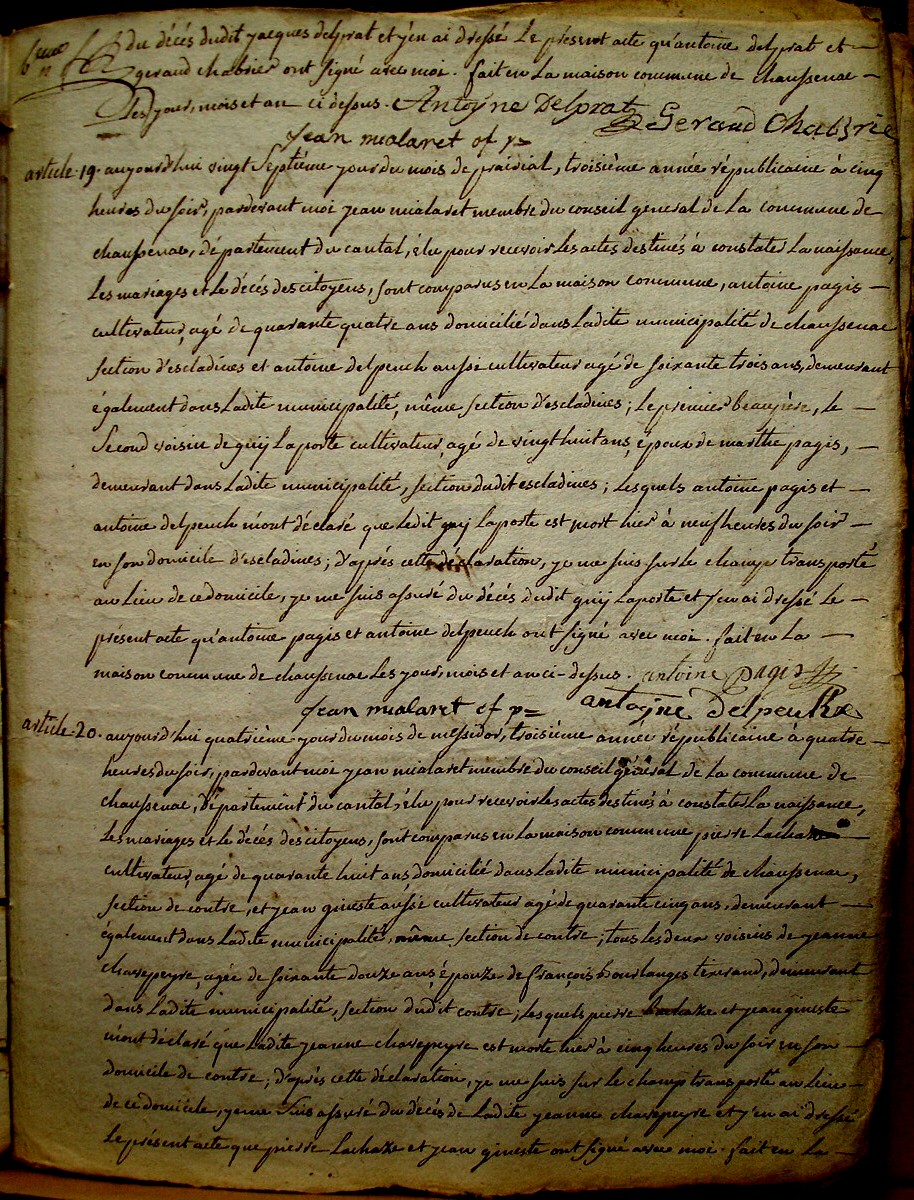 du décés dudit jacques delprat et j'en ai dressé Le present acte qu'antoine delprat et
geraud chabrier ont signé avec moi. fait en La maison commune de chaussenac
Les jour, mois et an ci dessus. Antoine Delprat
Geraud Chabrie
Jean mialaret of p=
article 19. aujourd'hui vingt Septième jour du mois de prairial, troisième année républicaine à cinq
heures du soir, pardevant moi jean mialaret membre du conseil general de La commune de
chaussenac, département du cantal, élu pour recevoir Les actes destinés à constater La naissance,
Les mariages et Le décés des citoyens, sont comparus en La maison commune, antoine pagis
cultivateur, agé de quarante quatre ans domicilié dans Ladite municipalité de chaussenac
section d'escladines et antoine delpeuch aussi cultivateur agé de soixante trois ans, demeurant
également dans Ladite municipalité, même section d'escladines; Le premier beaupère, Le
Second voisin de guij Laporte cultivateur, agé de vingt huit ans, époux de marthe pagis,
demeurant dans Ladite municipalité, section dudit escladines; Lesquels antoine pagis et
antoine delpeuch m'ont déclaré que Ledit guij Laporte est mort hier à neuf heures du soir
en son domicile d'escladines; d'aprés cette déclaration, je me suis sur Le champ transporté
au Lieu de ce domicile, je me suis assuré du décés dudit guij Laporte et j'en ai dressé Le
présent acte qu'antoine pagis et antoine delpeuch ont signé avec moi. fait en La
maison commune de chaussenac Les jour, mois et an ci-dessus. antoine pagis
Jean mialaret of p= antoijne Delpeukx
article 20. aujourd'hui quatrième jour du mois de messidor, troisième année républicaine à quatre
heures du soir, pardevant moi jean mialaret membre du conseil général de La commune de
chaussenac, département du cantal, élu pour recevoir Les actes destinés à constater La naissance,
Les mariages et Le décés des citoyens, sont comparus en La maison commune pierre Lachaze
cultivateur, agé de quarante huit ans domicilié dans Ladite municipalité de chaussenac,
section de contre, et jean gineste aussi cultivateur agé de quarante cinq ans, demeurant
également dans Ladite municipalité, même section de contre; tous Les deux voisins de jeanne
chavepeyre, agée de soixante douze ans, épouze de françois bourlanges tixerand, demeurant
dans Ladite municipalité, section dudit contre; Lesquels pierre Lachaze et jean gineste
m'ont déclaré que Ladite jeanne chavepeyre est morte hier à cinq heures du soir en son
domicile de contre; d'aprés cette déclaration, je me suis sur Le champ transporté au Lieu
de ce domicile, je me suis assuré du décés de Ladite jeanne chavepeyre et j'en ai dressé
Le présent acte que pierre Lachaze et jean gineste ont signé avec moi. fait en La